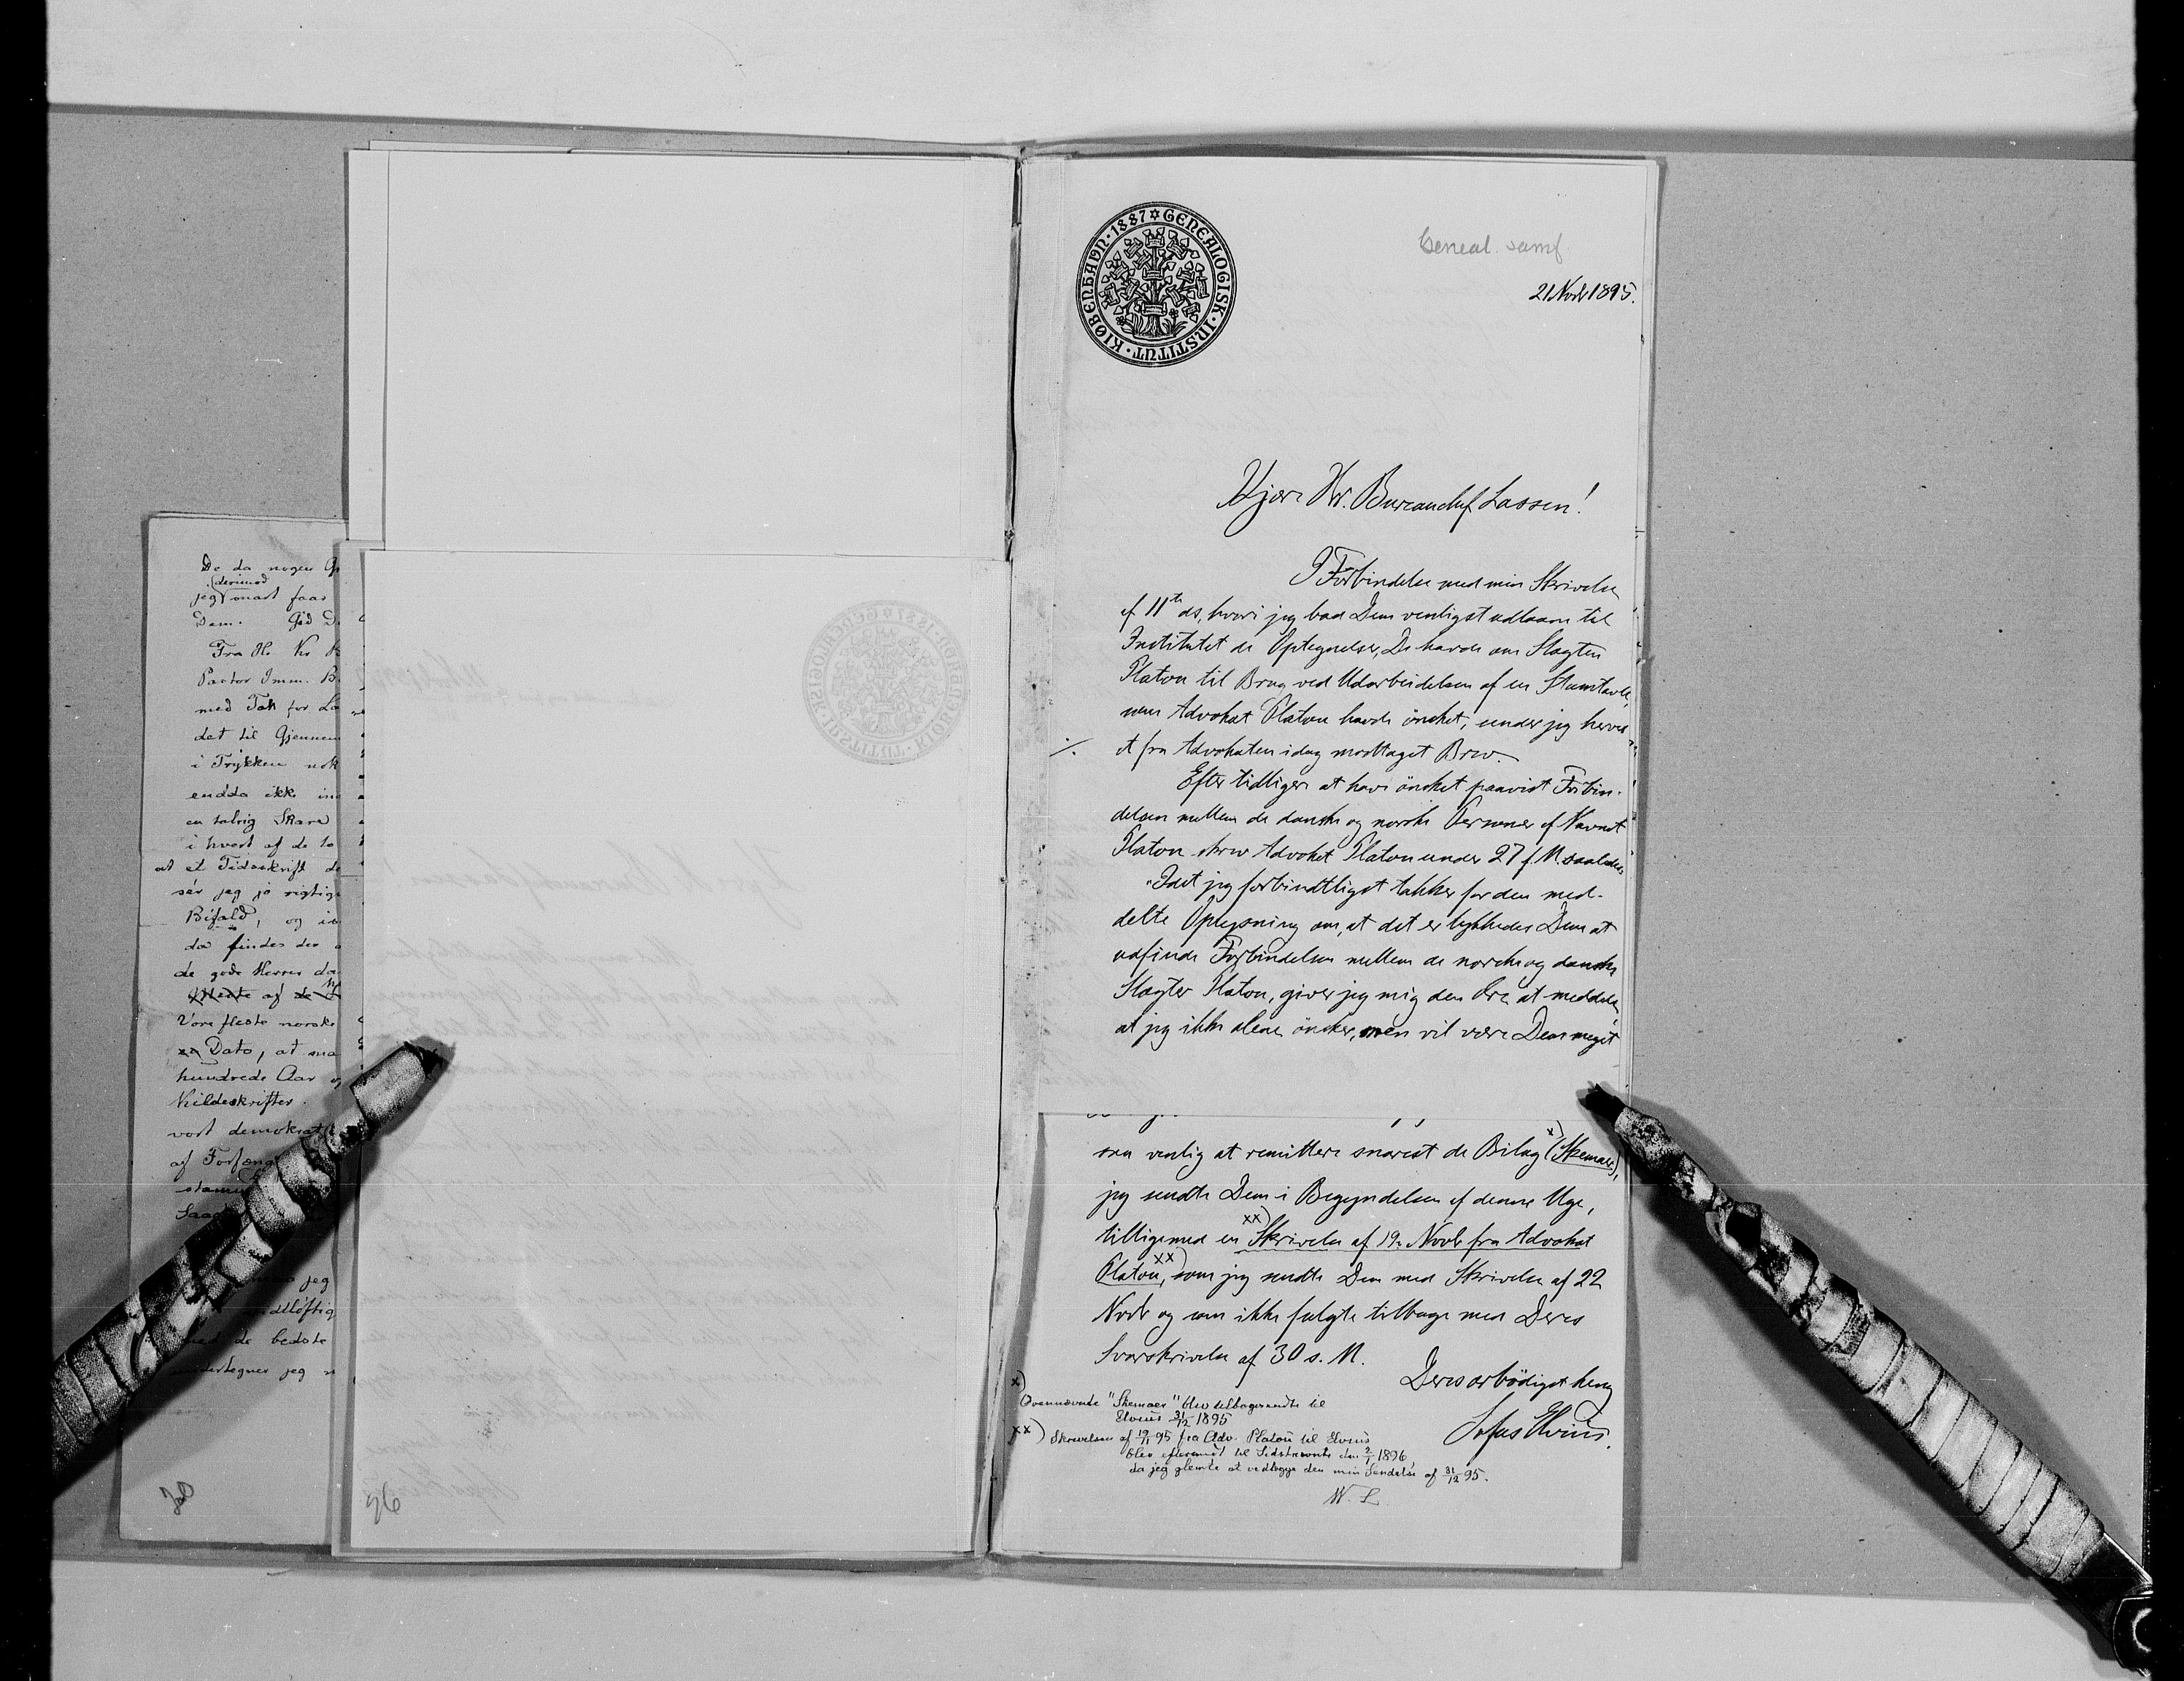 De da nogen
derimod
jeg snart faar
Dem. Gid
Fra H. Kr
Pastor Imm. B.
med Tak for
det til Gjennem
i Trykken nok
endda ikke
en talrig Skare
i hvert af de to
at et Tidsskrift
sér jeg jo rigtig
Bifald, og
da findes der
de gode Herrer
af
Vore fleste norske
Dato, at
hundrede Aar
Kildeskrifter.
vort demokrat
af
jeg
de bedste
undertegner jeg
96
KIØBENHAVN · 1887 ✡ GENEALOGISK · INSTITUT ·
Geneal. samf
21 Novb 1895.
Kjære Hr. Bureauchef Lassen!
I Forbindelse med min Skrivelse
af 11te ds, hvori jeg bad Dem venligst udlaane til
Institutet de Optegnelser, De havde om Slægten
Platou til Brug ved Udarbeidelsen af en Stamtavle,
som Advokat Platou havde ønsket, sender jeg herved
·/. et fra Advokaten idag modtaget Brev.
Efter tidligere at have ønsket paavist Forbin-
delsen mellem de danske og norske Personer af Navnet
Platou skrev Advokat Platou under 27 f. M. saaledes:
"Idet jeg forbindtligst takker for den med-
delte Oplysning om, at det er lykkedes Dem at
udfinde Forbindelsen mellem de norske og danske
Slægter Platou, giver jeg mig den Ære at meddele,
at jeg ikke alene ønsker, men vil være Dem meget
saa venlig at remittere snarest de Bilag x) (Skemaer),
jeg sendte Dem i Begyndelsen af denne Uge,
tilligemed en xx) Skrivelse af 19. Novb fra Advokat
Platou, xx) som jeg sendte Dem med Skrivelse af 22
Novb og som ikke fulgte tilbage med Deres
Svarskrivelse af 30 s. M.
Deres ærbødigst heng
Sofus Elvius.
x) Ovennævnte "Skemaer" blev tilbagesendte til
Elvius 31/12 1895
xx) Skrivelsen af 19/11 95 fra Adv. Platou til Elvius
blev eftersendt til Sidstnævnte den 2/1 1896
da jeg glemte at vedlægge den min Sendelse af 31/12 95.
W. L.